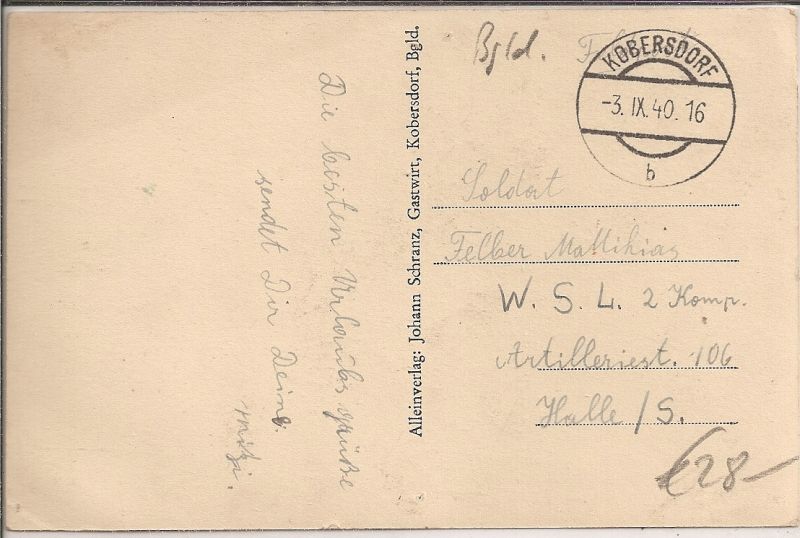 Die besten Urlaubsgrüße
sendet Dir Deine
Mitzi.
Alleinverlag: Johann Schranz, Gastwirt, Kobersdorf, Bgld.
Bgld.
KOBERSDORF
-3. IX. 40. 16
b
Soldat
Felber Matthias
W. S. L. 2 Komp.
Artilleriest. 106
Halle/S.
€28-